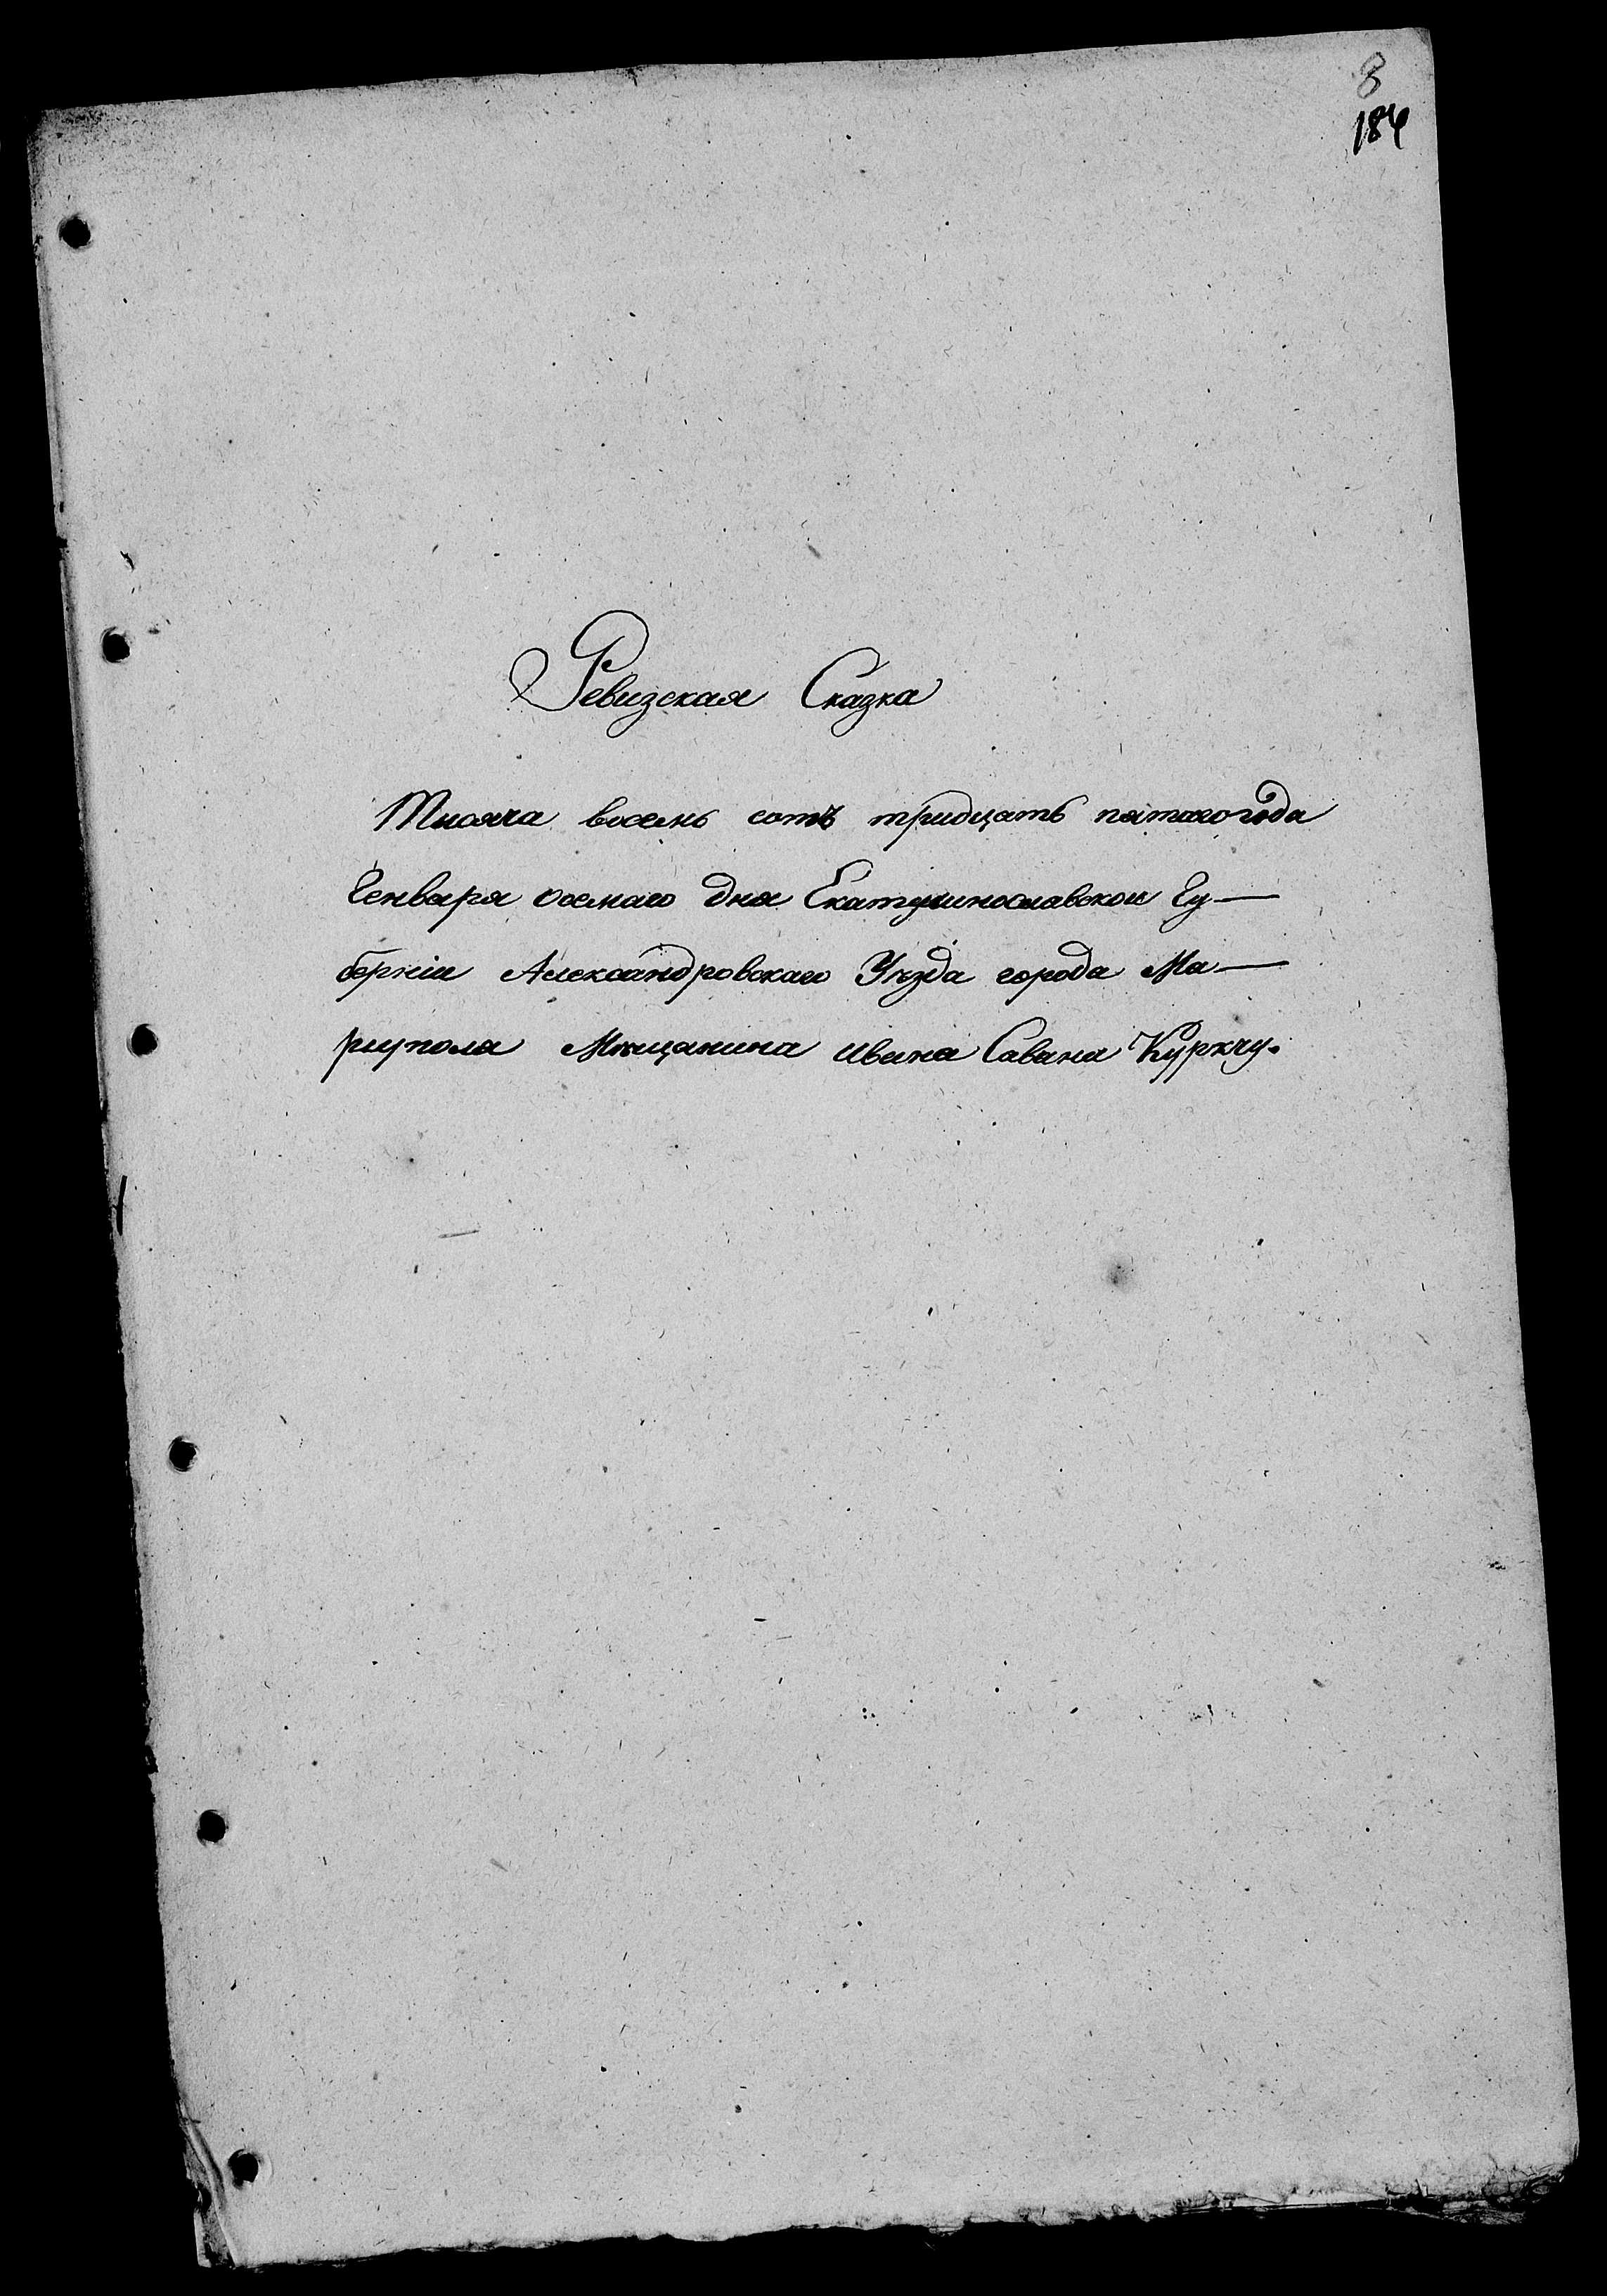 8
184
Ревизская Сказка
Тисяча восемь сотъ тридцать пятого года
Генваря осмаго дня Екатеринославской Гу-
берніи Александровскаго Уѣзда города Ма-
риуполя Мѣщанина Ивана Савана Куркчу.